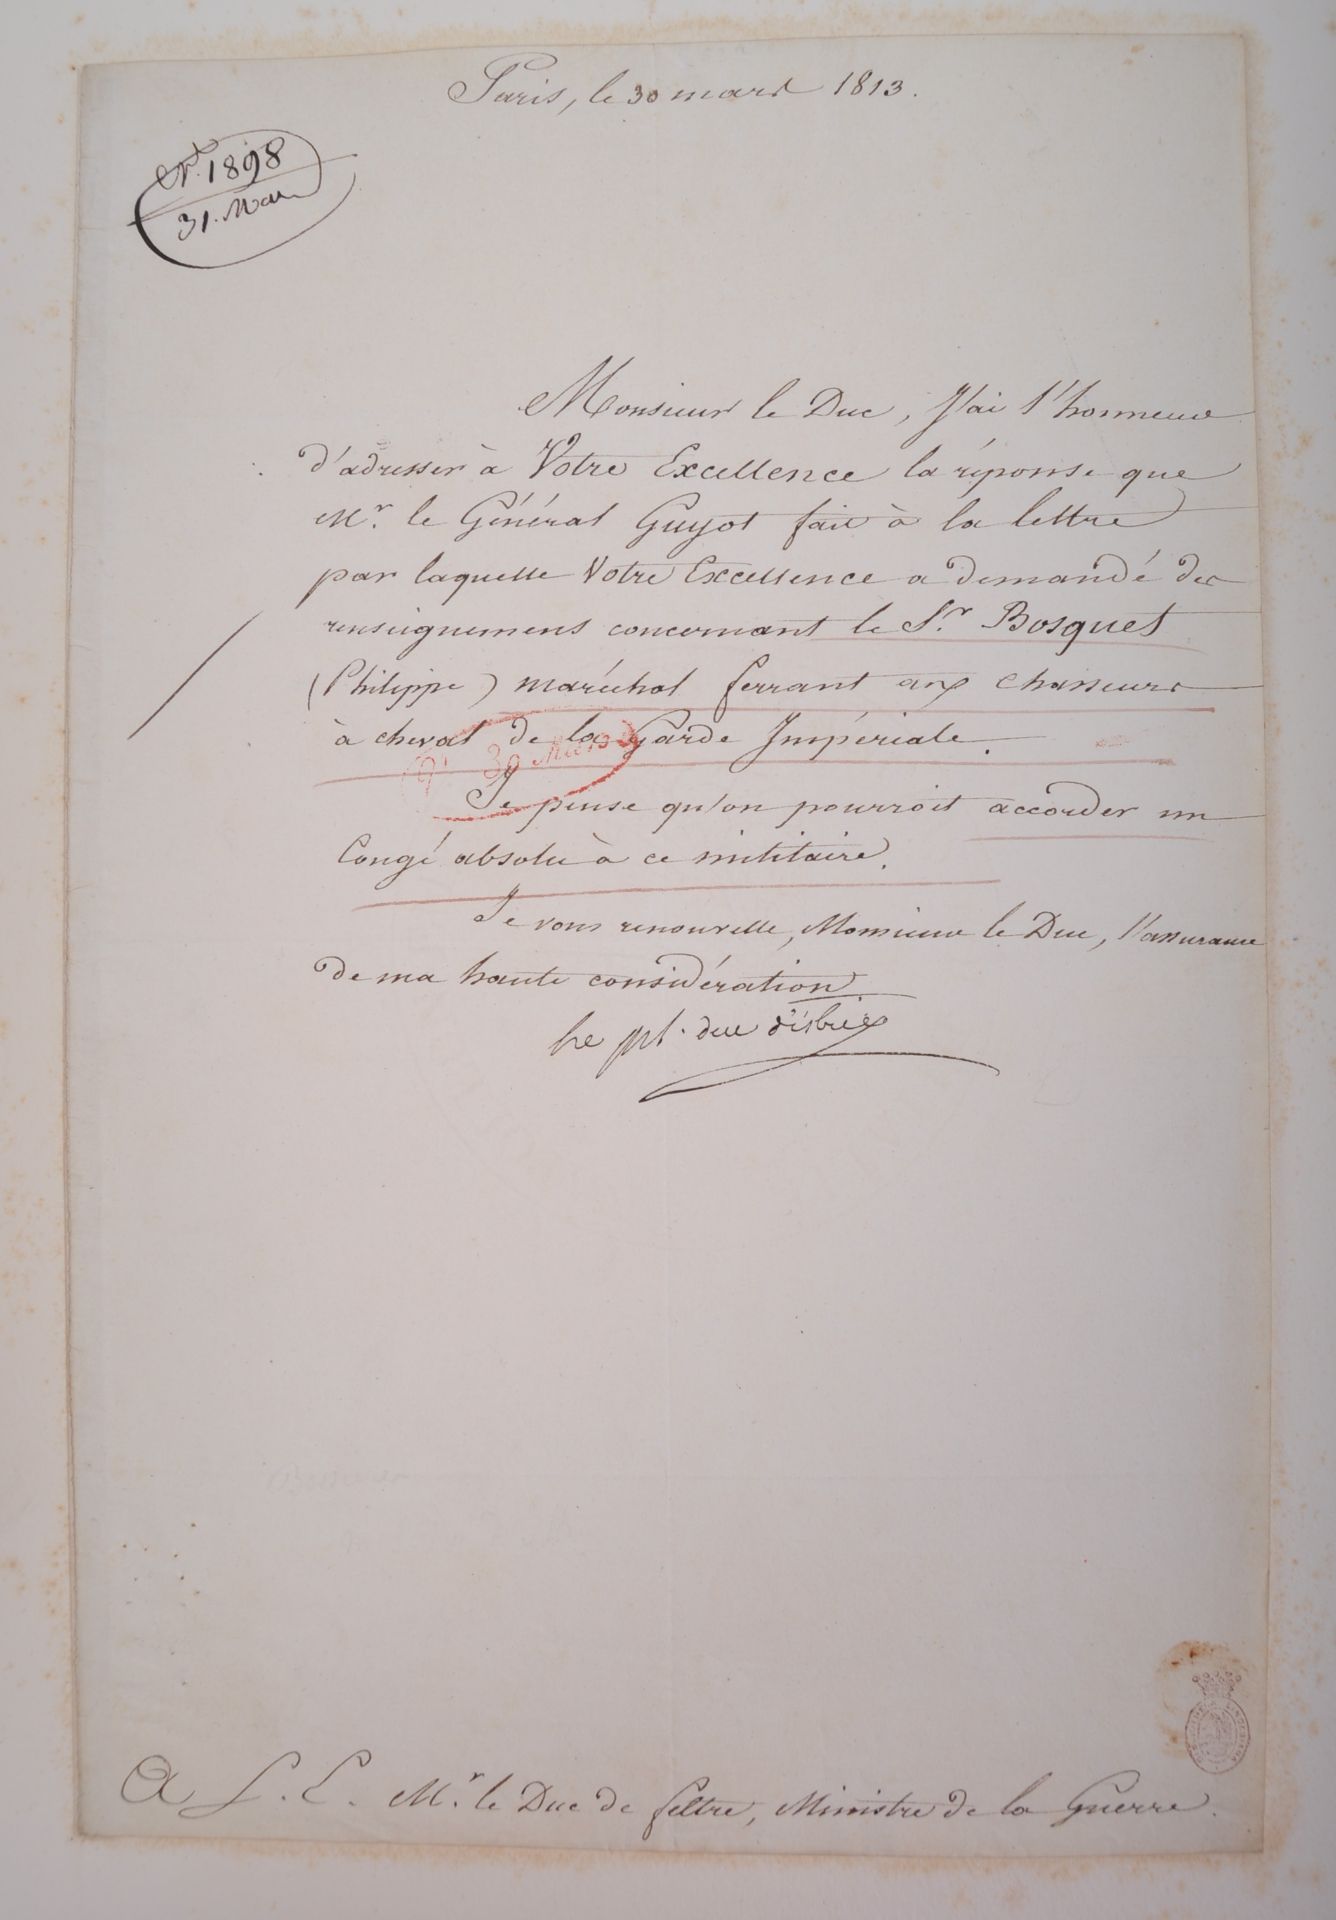 Paris, le 30 mars 1813.
N.° 1898
31. Mars
Monsieur le Duc, J'ai l'honneur
d'adresser à Votre Excellence la réponse que
Mr. le Général Guyot fait à la lettre
par laquelle Votre Excellence a demandé des
renseignemens concernant le Sr. Bosquet
(Philippe) maréchal ferrant aux chasseurs
à cheval de la Garde Impériale.
30 Mars
Je pense qu'on pourroit accorder un
Congé absolu à ce militaire.
Je vous renouvelle, Monsieur le Duc, l'assurance
de ma haute considération
le ml. duc d'istrie
A S. E. Mr. le Duc de feltre, Ministre de la Guerre.